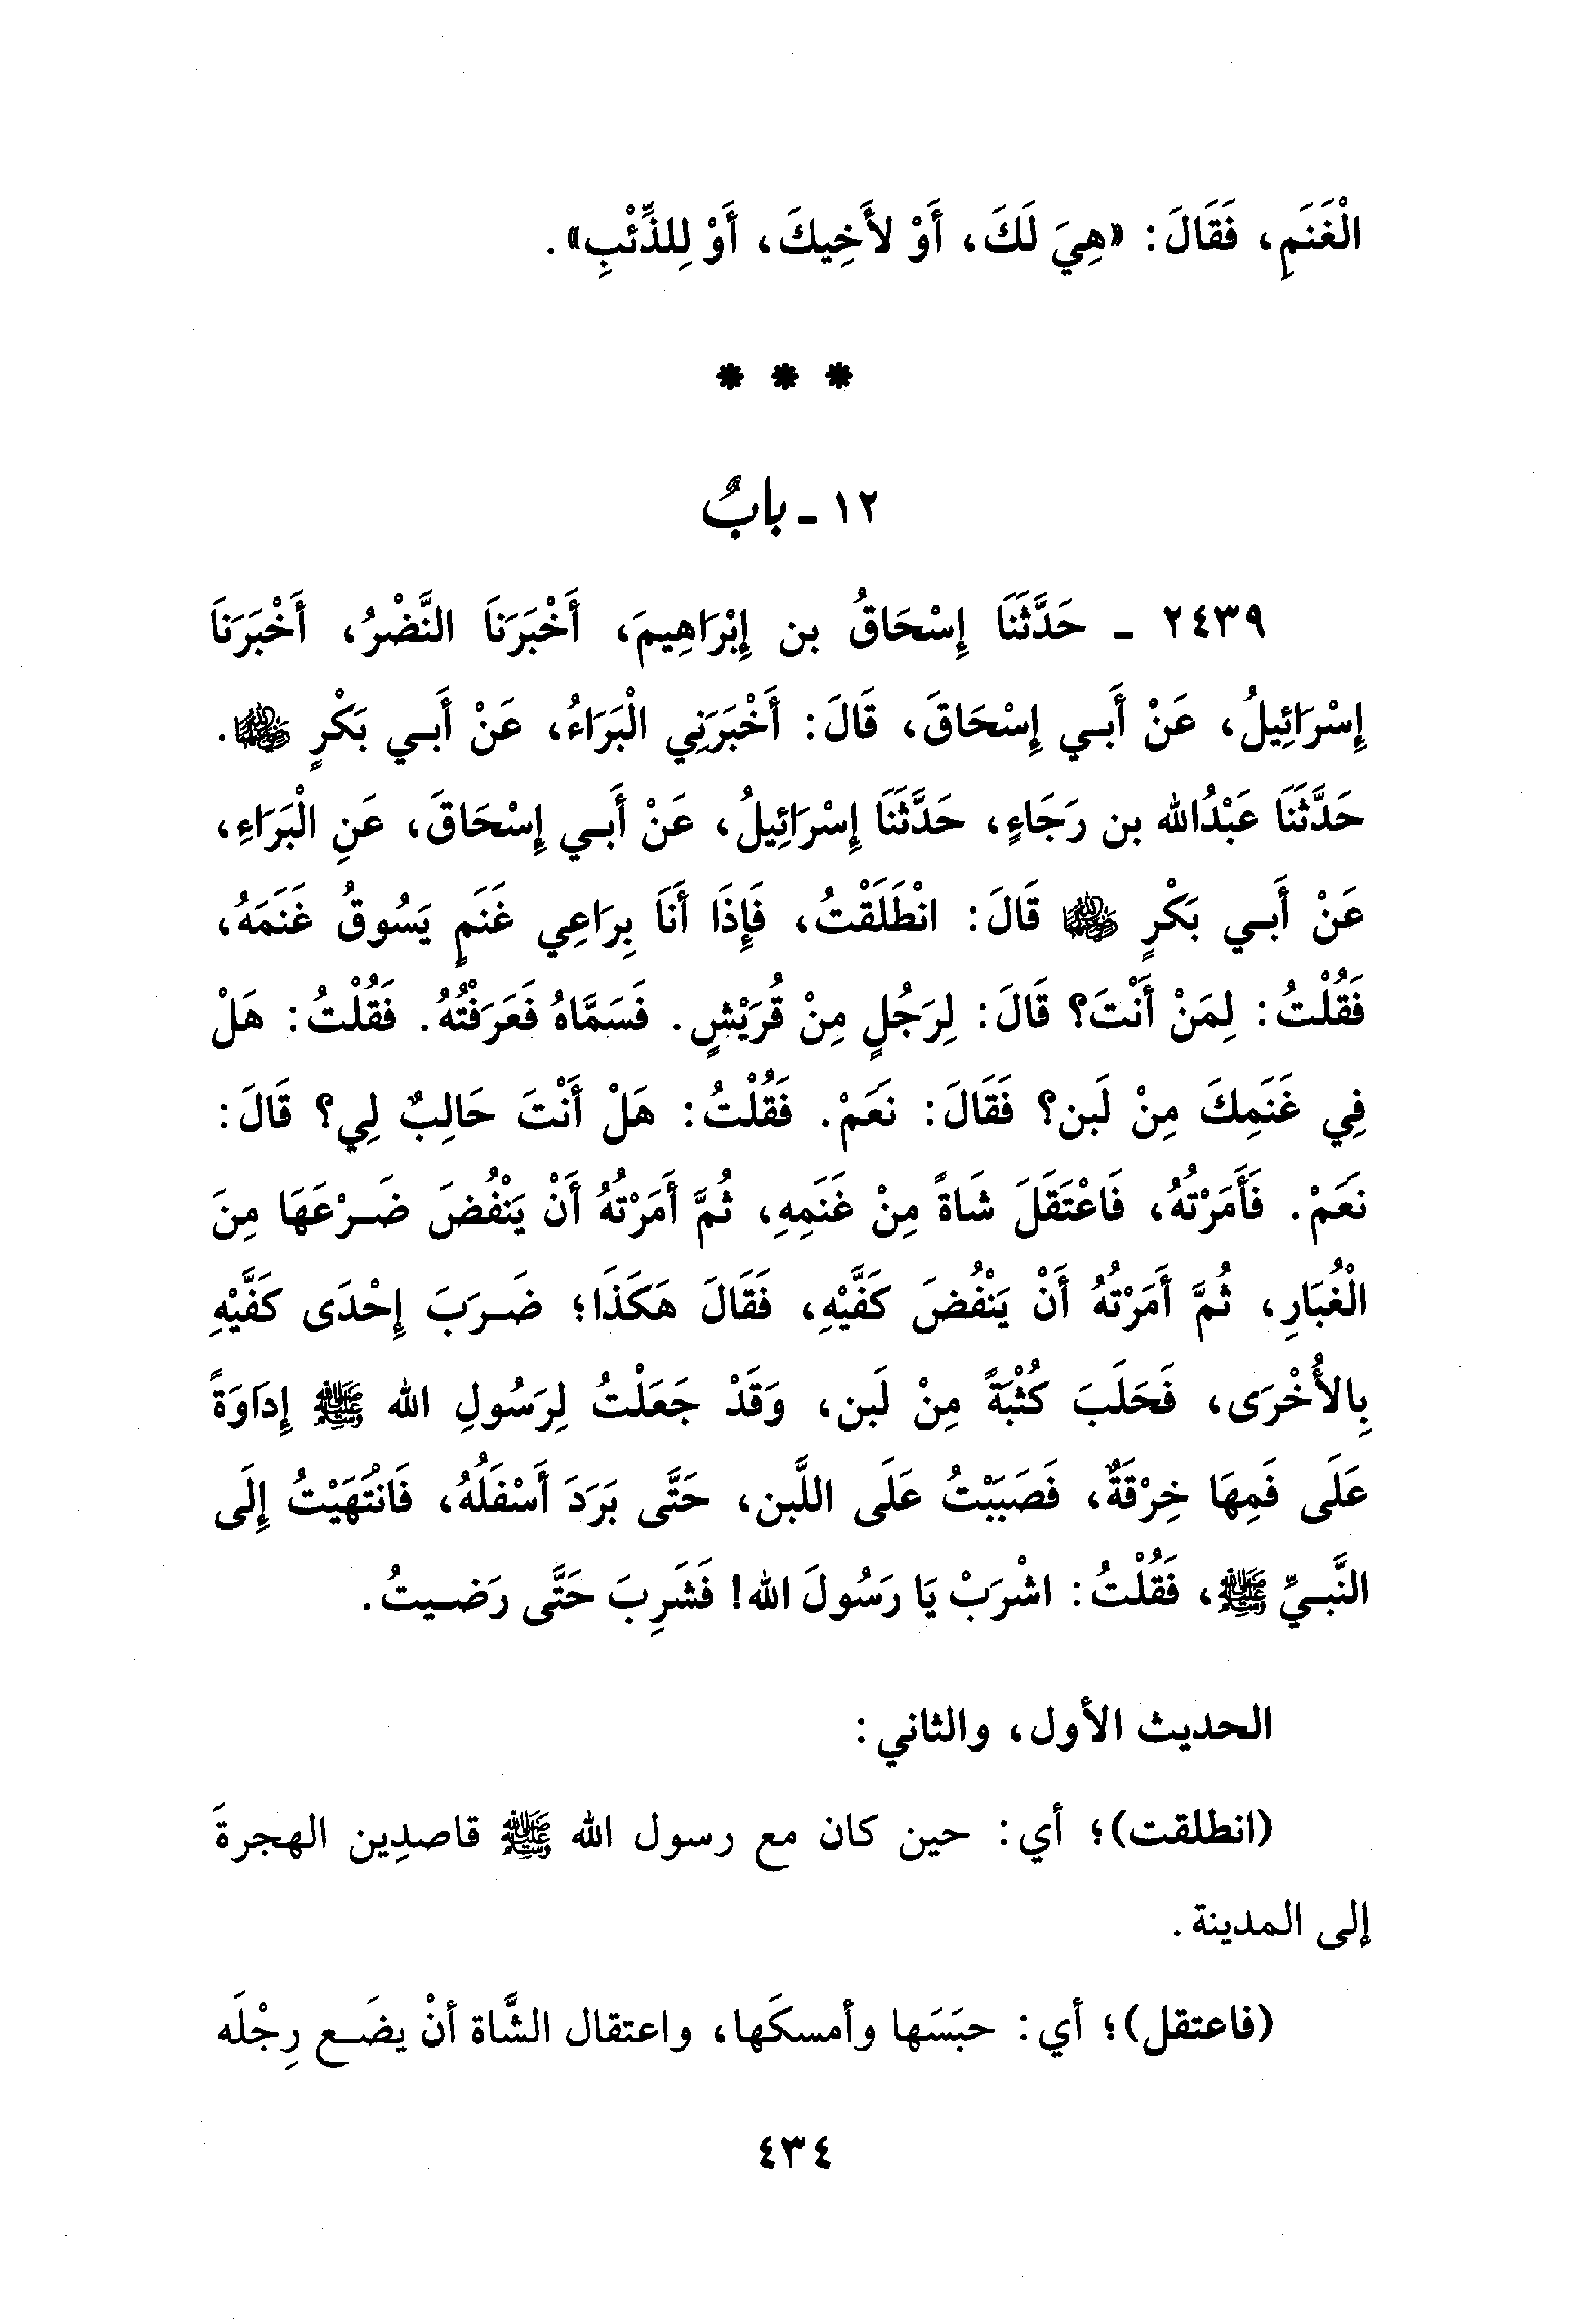 الْغَنَمِ، فَقَالَ: «هِيَ لَكَ، أَوْ لأَخِيكَ، أَوْ لِلذِّئْبِ».
* * *
١٢ - بابٌ
٢٤٣٩ - حَدَّثَنَا إِسْحَاقُ بن إِبْرَاهِيمَ، أَخْبَرَنَا النَّضْرُ، أَخْبَرَنَا
إِسْرَائِيلُ، عَنْ أَبِي إِسْحَاقَ، قَالَ: أَخْبَرَنِي الْبَرَاءُ، عَنْ أَبِي بَكْرٍ رضي الله عنه.
حَدَّثَنَا عَبْدُالله بن رَجَاءٍ، حَدَّثَنَا إِسْرَائِيلُ، عَنْ أَبِي إِسْحَاقَ، عَنِ الْبَرَاءِ،
عَنْ أَبِي بَكْرٍ رضي الله عنه قَالَ: انْطَلَقْتُ، فَإِذَا أَنَا بِرَاعِي غَنَمٍ يَسُوقُ غَنَمَهُ،
فَقُلْتُ: لِمَنْ أَنْتَ؟ قَالَ: لِرَجُلٍ مِنْ قُرَيْشٍ. فَسَمَّاهُ فَعَرَفْتُهُ. فَقُلْتُ: هَلْ
فِي غَنَمِكَ مِنْ لَبن؟ فَقَالَ: نَعَمْ. فَقُلْتُ: هَلْ أَنْتَ حَالِبٌ لِي؟ قَالَ:
نَعَمْ. فَأَمَرْتُهُ، فَاعْتَقَلَ شَاةً مِنْ غَنَمِهِ، ثُمَّ أَمَرْتُهُ أَنْ يَنْفُضَ ضَرْعَهَا مِنَ
الْغُبَارِ، ثُمَّ أَمَرْتُهُ أَنْ يَنْفُضَ كَفَّيْهِ، فَقَالَ هَكَذَا؛ ضَرَبَ إِحْدَى كَفَّيْهِ
بِالأُخْرَى، فَحَلَبَ كُثْبَةً مِنْ لَبن، وَقَدْ جَعَلْتُ لِرَسُولِ الله ﷺ إِدَاوَةً
عَلَى فَمِهَا خِرْقَةٌ، فَصَبَبْتُ عَلَى اللَّبن، حَتَّى بَرَدَ أَسْفَلُهُ، فَانْتَهَيْتُ إِلَى
النَّبيِّ ﷺ، فَقُلْتُ: اشْرَبْ يَا رَسُولَ الله! فَشَرِبَ حَتَّى رَضيتُ.
الحديث الأول، والثاني:
(انطلقت)؛ أي: حين كان مع رسول الله ﷺ قاصدِين الهجرةَ
إلى المدينة.
(فاعتقل)؛ أي: حبَسَها وأمسكَها، واعتقال الشَّاة أنْ يضَع رِجْلَه
٤٣٤